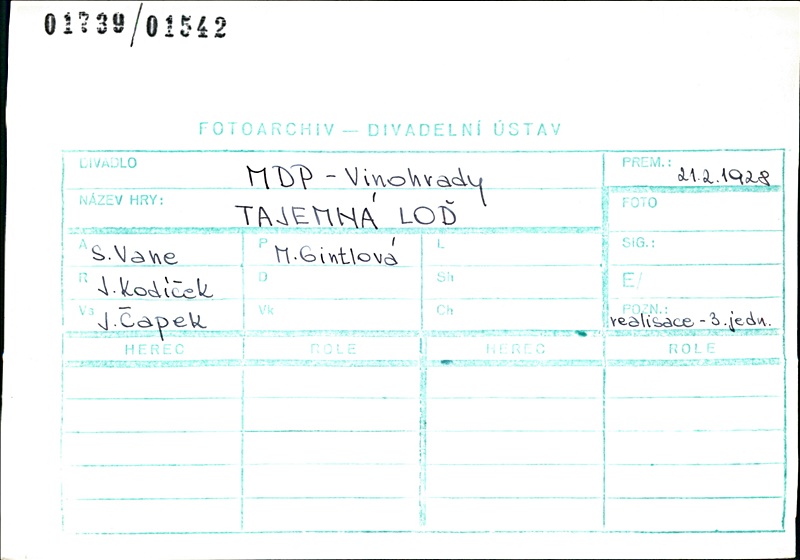 01739/01542
FOTOARCHIV — DIVADELNÍ ÚSTAV
DIVADLO MDP - Vinohrady PREM.: 21.2.1928
NÁZEV HRY: TAJEMNÁ LOĎ FOTO
A S. Vane P M. Gintlová L SIG.:
R J. Kodíček D Sh E/
Vs J. Čapek Vk Ch POZN.: realisace - 3. jedn.
HEREC ROLE HEREC ROLE